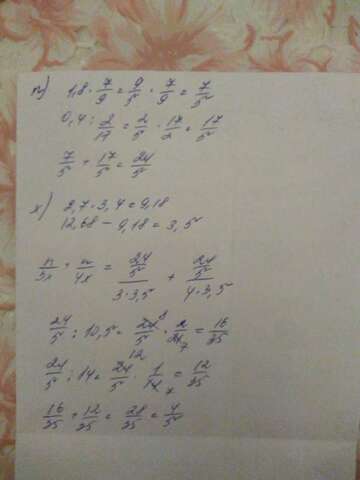 n) 1,8 · 7/9 = 9/5 · 7/9 = 7/5
0,4 : 2/17 = 2/5 · 17/2 = 17/5
7/5 + 17/5 = 24/5
x) 2,7 · 3,4 = 9,18
12,68 - 9,18 = 3,5
n/3x + n/4x = 24/5 / 3·3,5 + 24/5 / 4·3,5
24/5 : 10,5 = 24/5 · 2/21 = 16/35
24/5 : 14 = 24/5 · 1/14 = 12/35
16/35 + 12/35 = 28/35 = 4/5